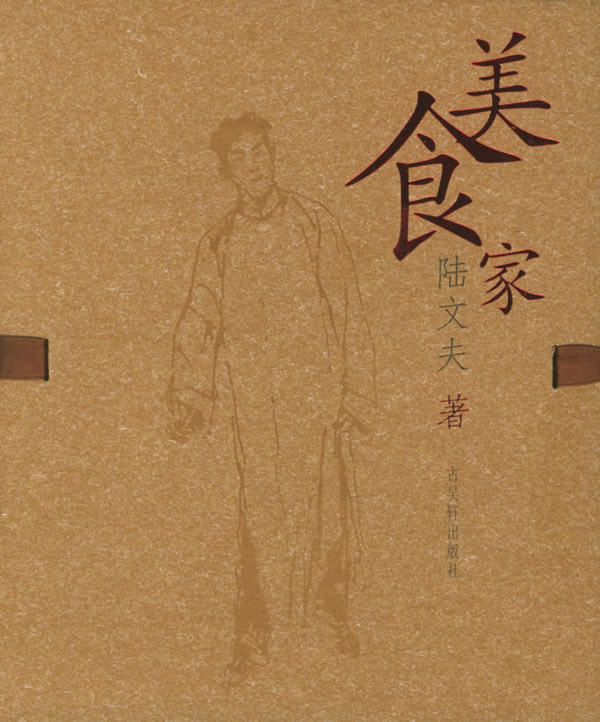 美食家
陆文夫 著
古吴轩出版社